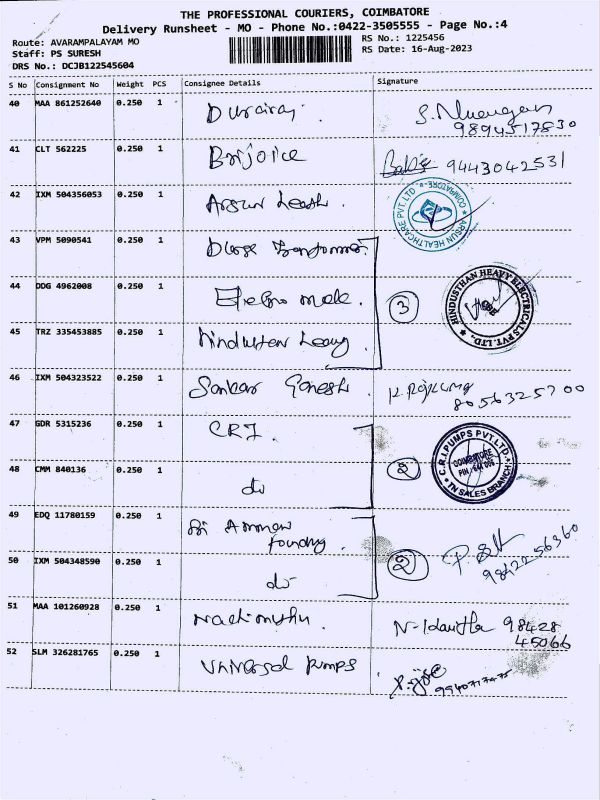 THE PROFESSIONAL COURIERS, COIMBATORE
Delivery Runsheet - MO - Phone No.:0422-3505555 - Page No.:4
Route: AVARAMPALAYAM MO
RS No.: 1225456
Staff: PS SURESH
RS Date: 16-Aug-2023
DRS No.: DCJB122545604
S No Consignment No Weight PCS Consignee Details Signature
40 MAA 861252640 0.250 1 Durairaj
9894517830
41 CLT 562225 0.250 1 Brijoice 9443042531
42 IXM 504356053 0.250 1 Arsun Health
ARSUN HEALTHCARE PVT. LTD. COIMBATORE
43 VPM 5090541 0.250 1
44 DDG 4962008 0.250 1 3
HINDUSTHAN HEAVY ELECTRICALS PVT. LTD.
45 TRZ 335453885 0.250 1 Hindustan Heavy
46 IXM 504323522 0.250 1 Sankar Ganesh. K. Rajkumar
8056325700
47 GDR 5315236 0.250 1 CRI.
C.R.I. PUMPS PVT. LTD. COIMBATORE TN SALES BRANCH
48 CMM 840136 0.250 1 do 2
49 EDQ 11780159 0.250 1 Sri Amman
Foundry.
50 IXM 504348590 0.250 1 do 2 9842256360
51 MAA 101260928 0.250 1 Nachimuthu 98428
45066
52 SLM 326281765 0.250 1 Universal Pumps
9940717475